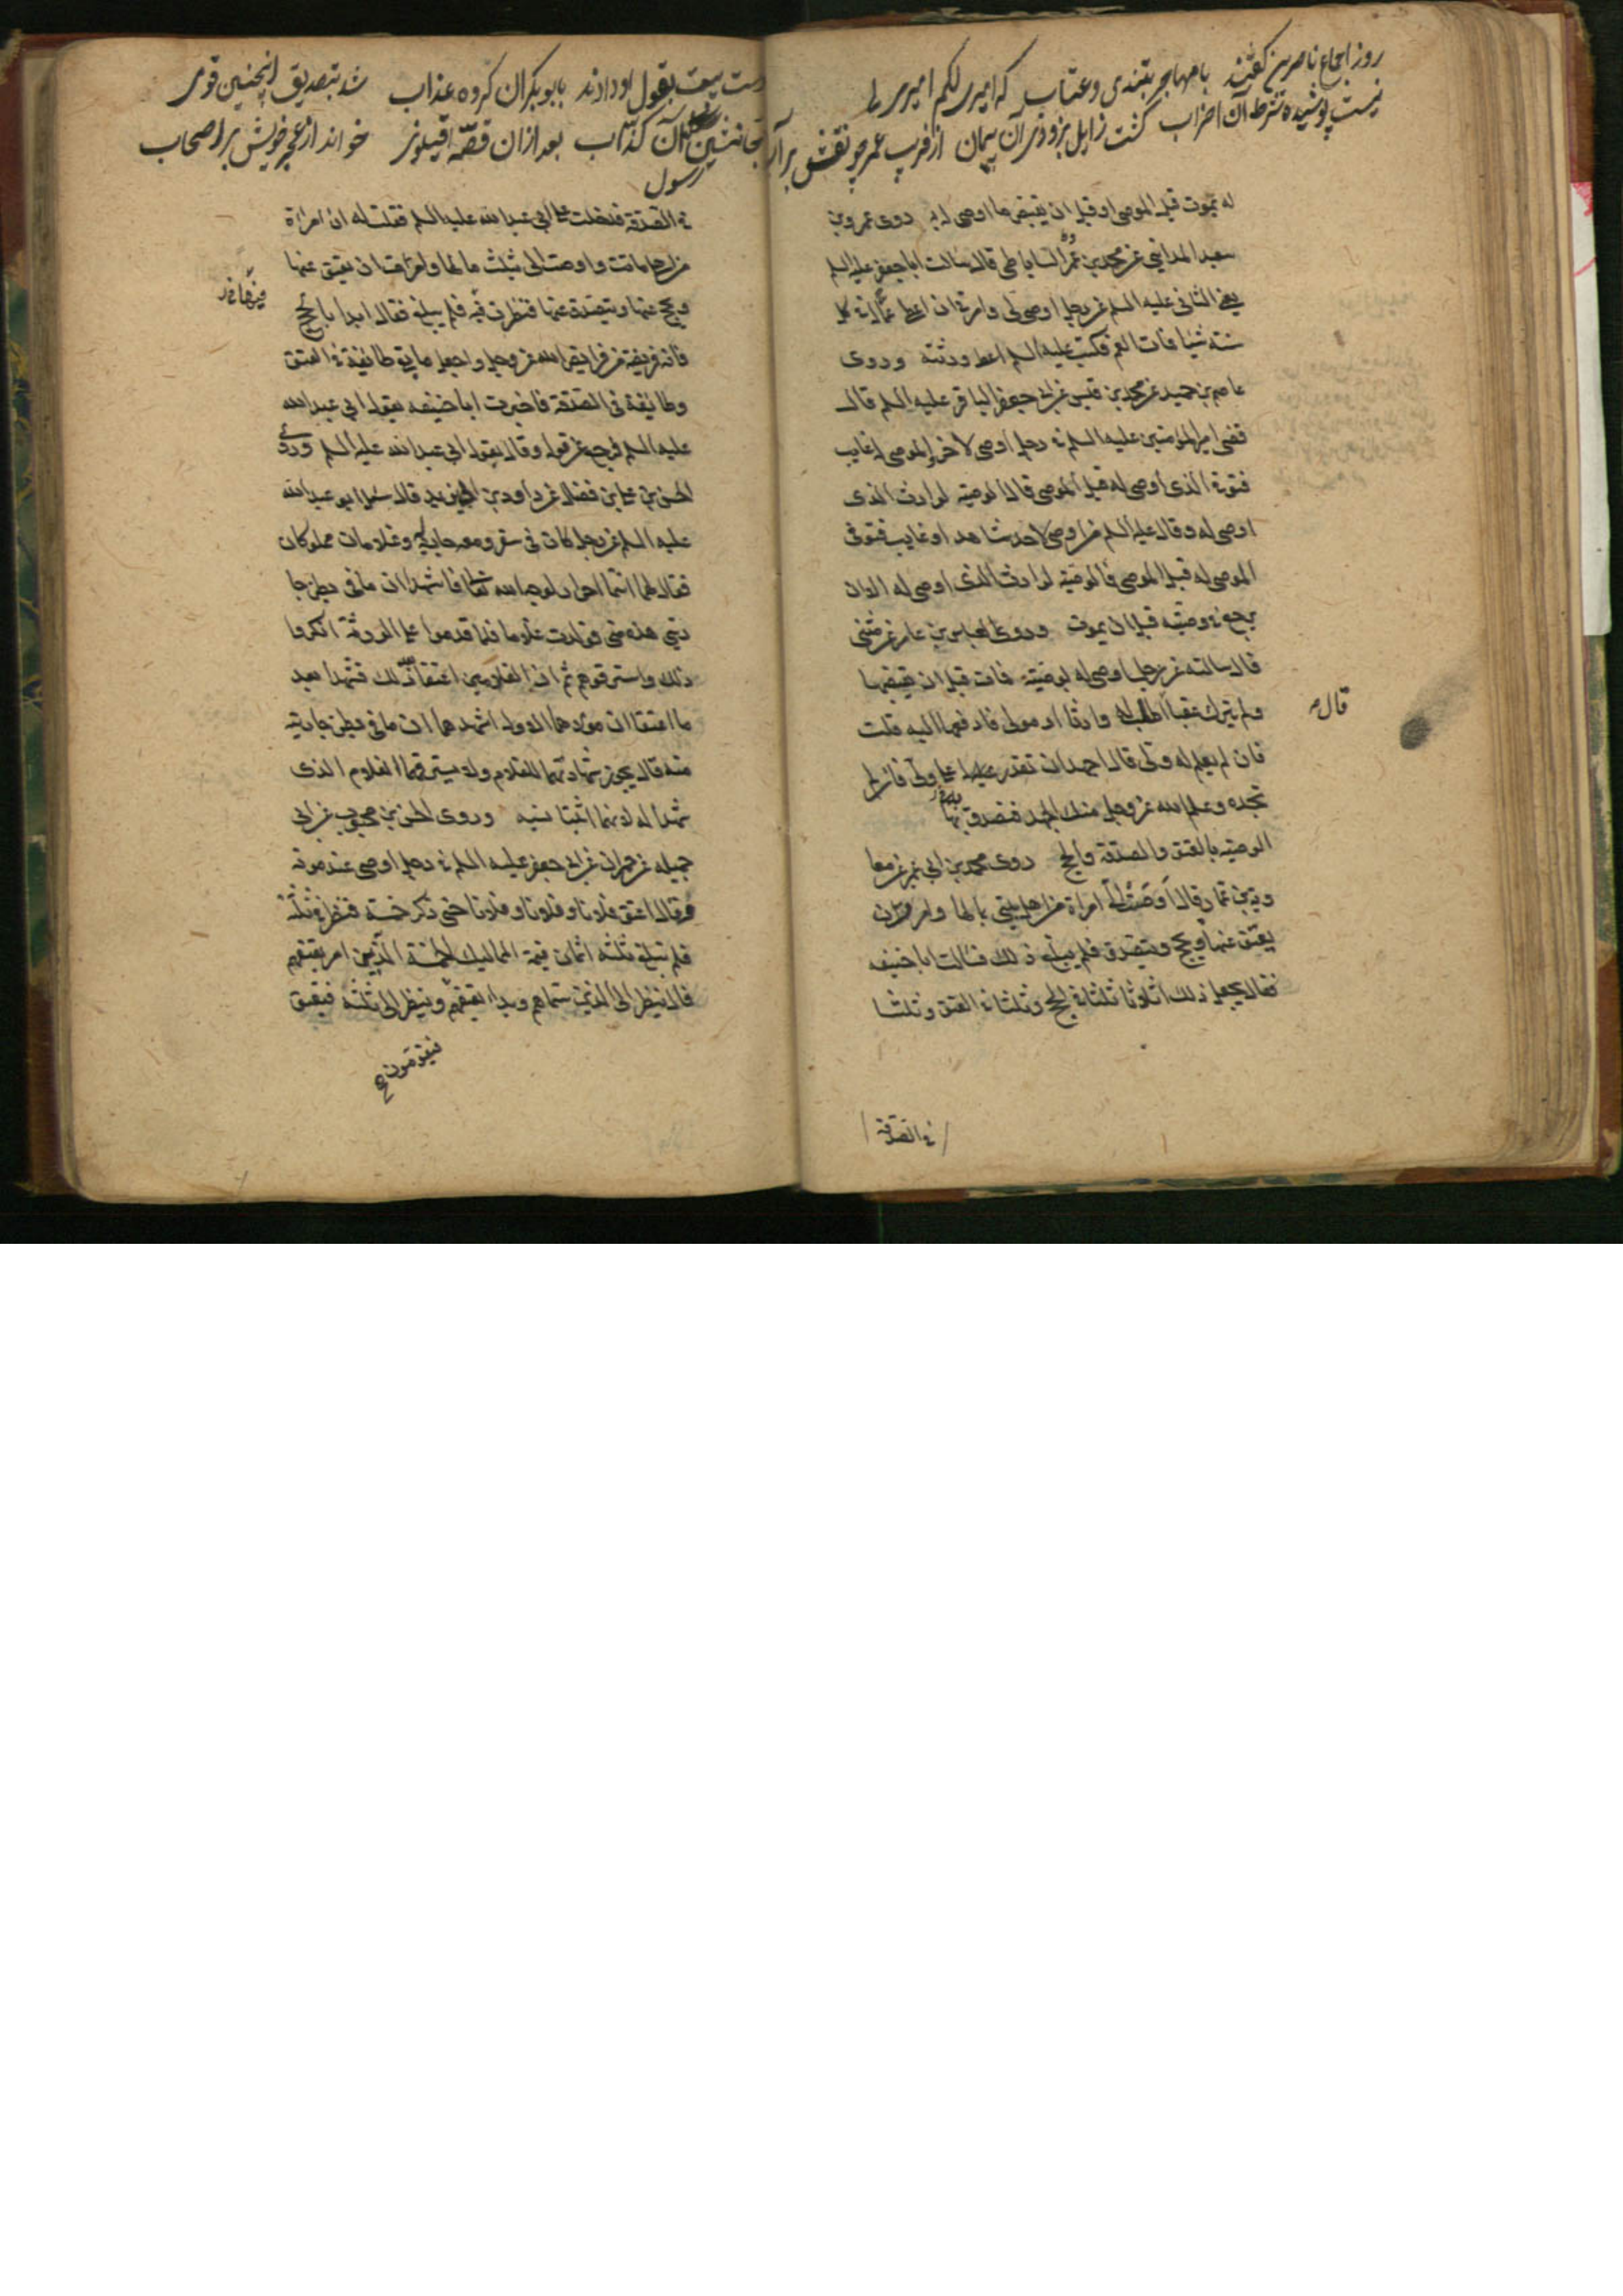 روز اجماع ناصرین گفتند با مهاجر بتندی و عتاب که امیری لکم امیری لنا
نیست پوشیده شرط آن احزاب گشت زایل بزودی آن پیمان از فریب عمر چو نقش بر آب
له يموت قبل الموصى او قبل ان يقبض ما اوصى له به روى عمرو بن
سعيد المدائنى عن محمد بن عمر الساباطى قال سالت ابا جعفر عليه السلم
يعنى الثانى عليه السلم عن رجل اوصى الى وامرنى ان اعطى عما له فى كل
سنة شيئا فمات العم فكتب عليه السلم اعط ورثته وروى
عاصم بن حميد عن محمد بن قيس عن ابى جعفر الباقر عليه السلم قال
قضى امير المؤمنين عليه السلم فى رجل اوصى لاخر والموصى له غايب
فتوفى الذى اوصى له قبل الموصى قال الوصية لوارث الذى
اوصى له وقال عليه السلم من اوصى لاحد شاهدا او غايب فتوفى
الموصى له قبل الموصى فالوصية لوارث الذى اوصى له الا ان
يرجع فى وصيته قبل ان يموت وروى العباس بن عامر عن مثنى
قال سالته عن رجل اوصى له بوصية فمات قبل ان يقبضها
ولم يترك عقبا اطلب له وارثا او مولى فادفعها اليه قلت
قال
فان لم يعلم له ولى قال اجهد ان تقدر له على ولى فان لم
تجده وعلم الله عز وجل منك الجهد فتصدق بها
الوصية بالعتق والصدقة والحج روى محمد بن ابى عمير عن معا
وية بن عمار قال اوصت الى امراة من اهل بيتى بمالها وامرت ان
يعتق عنها ويحج ويتصدق فلم يبلغ ذلك فسالت ابا حنيفه
فقال يجعل ذلك اثلاثا ثلثا فى الحج وثلثا فى العتق وثلثا
فى الصدقة
دست بیعت بقول او دادند با ابوبکر آن گروه عذاب شد بتصدیق اینچنین قومی
جانشین رسول آن کذاب بعد از آن قصه اقیلونی خواند از عجز خویش بر اصحاب
فى الصدقة فدخلت على ابى عبد الله عليه السلم فقلت له ان امراة
من اهلى ماتت واوصت الى بثلث مالها وامرت ان يعتق عنها
ويحج عنها ويتصدق عنها فنظرت فيه فلم يبلغ فقال ابدا بالحج
فانه فريضة من فرايض الله عز وجل واجعل ما بقى طائفة فى العتق
وطائفة فى الصدقة فاخبرت ابا حنيفه بقول ابى عبد الله
عليه السلم فرجع عن قوله وقال بقول ابى عبد الله عليه السلم وروى
الحسن بن على بن فضال عن داود بن ابى يزيد قال سئل ابو عبد الله
عليه السلم عن رجل كان فى سفر ومعه جارية وغلامان مملوكان
فقال لهما انتما احرار لوجه الله تعالى فاشهدا ان ما فى بطن جا
ريتى هذه منى فولدت غلاما فلما قدموا على الورثة انكروا
ذلك واسترقوهم ثم ان الغلامين اعتقا بعد ذلك فشهدا بعد
ما اعتقا ان مولاهما الاول اشهدهما ان ما فى بطن جاريته
منه قال يجوز شهادتهما للغلام ولا يسترقهما الغلام الذى
شهدا له لانهما اثبتا نسبه وروى الحسن بن محبوب عن ابى
جميله عن حمران عن ابى جعفر عليه السلم فى رجل اوصى عند موته
وقال اعتق فلانا وفلانا وفلانا حتى ذكر خمسة فنظر فى ثلثه
فلم تبلغ ثلثه اثمان قيمة المماليك الخمسة الذين امر بعتقهم
قال ينظر الى الذين سماهم وبدا بعتقهم وينظر الى ثلثه فيعتق
فيقومون